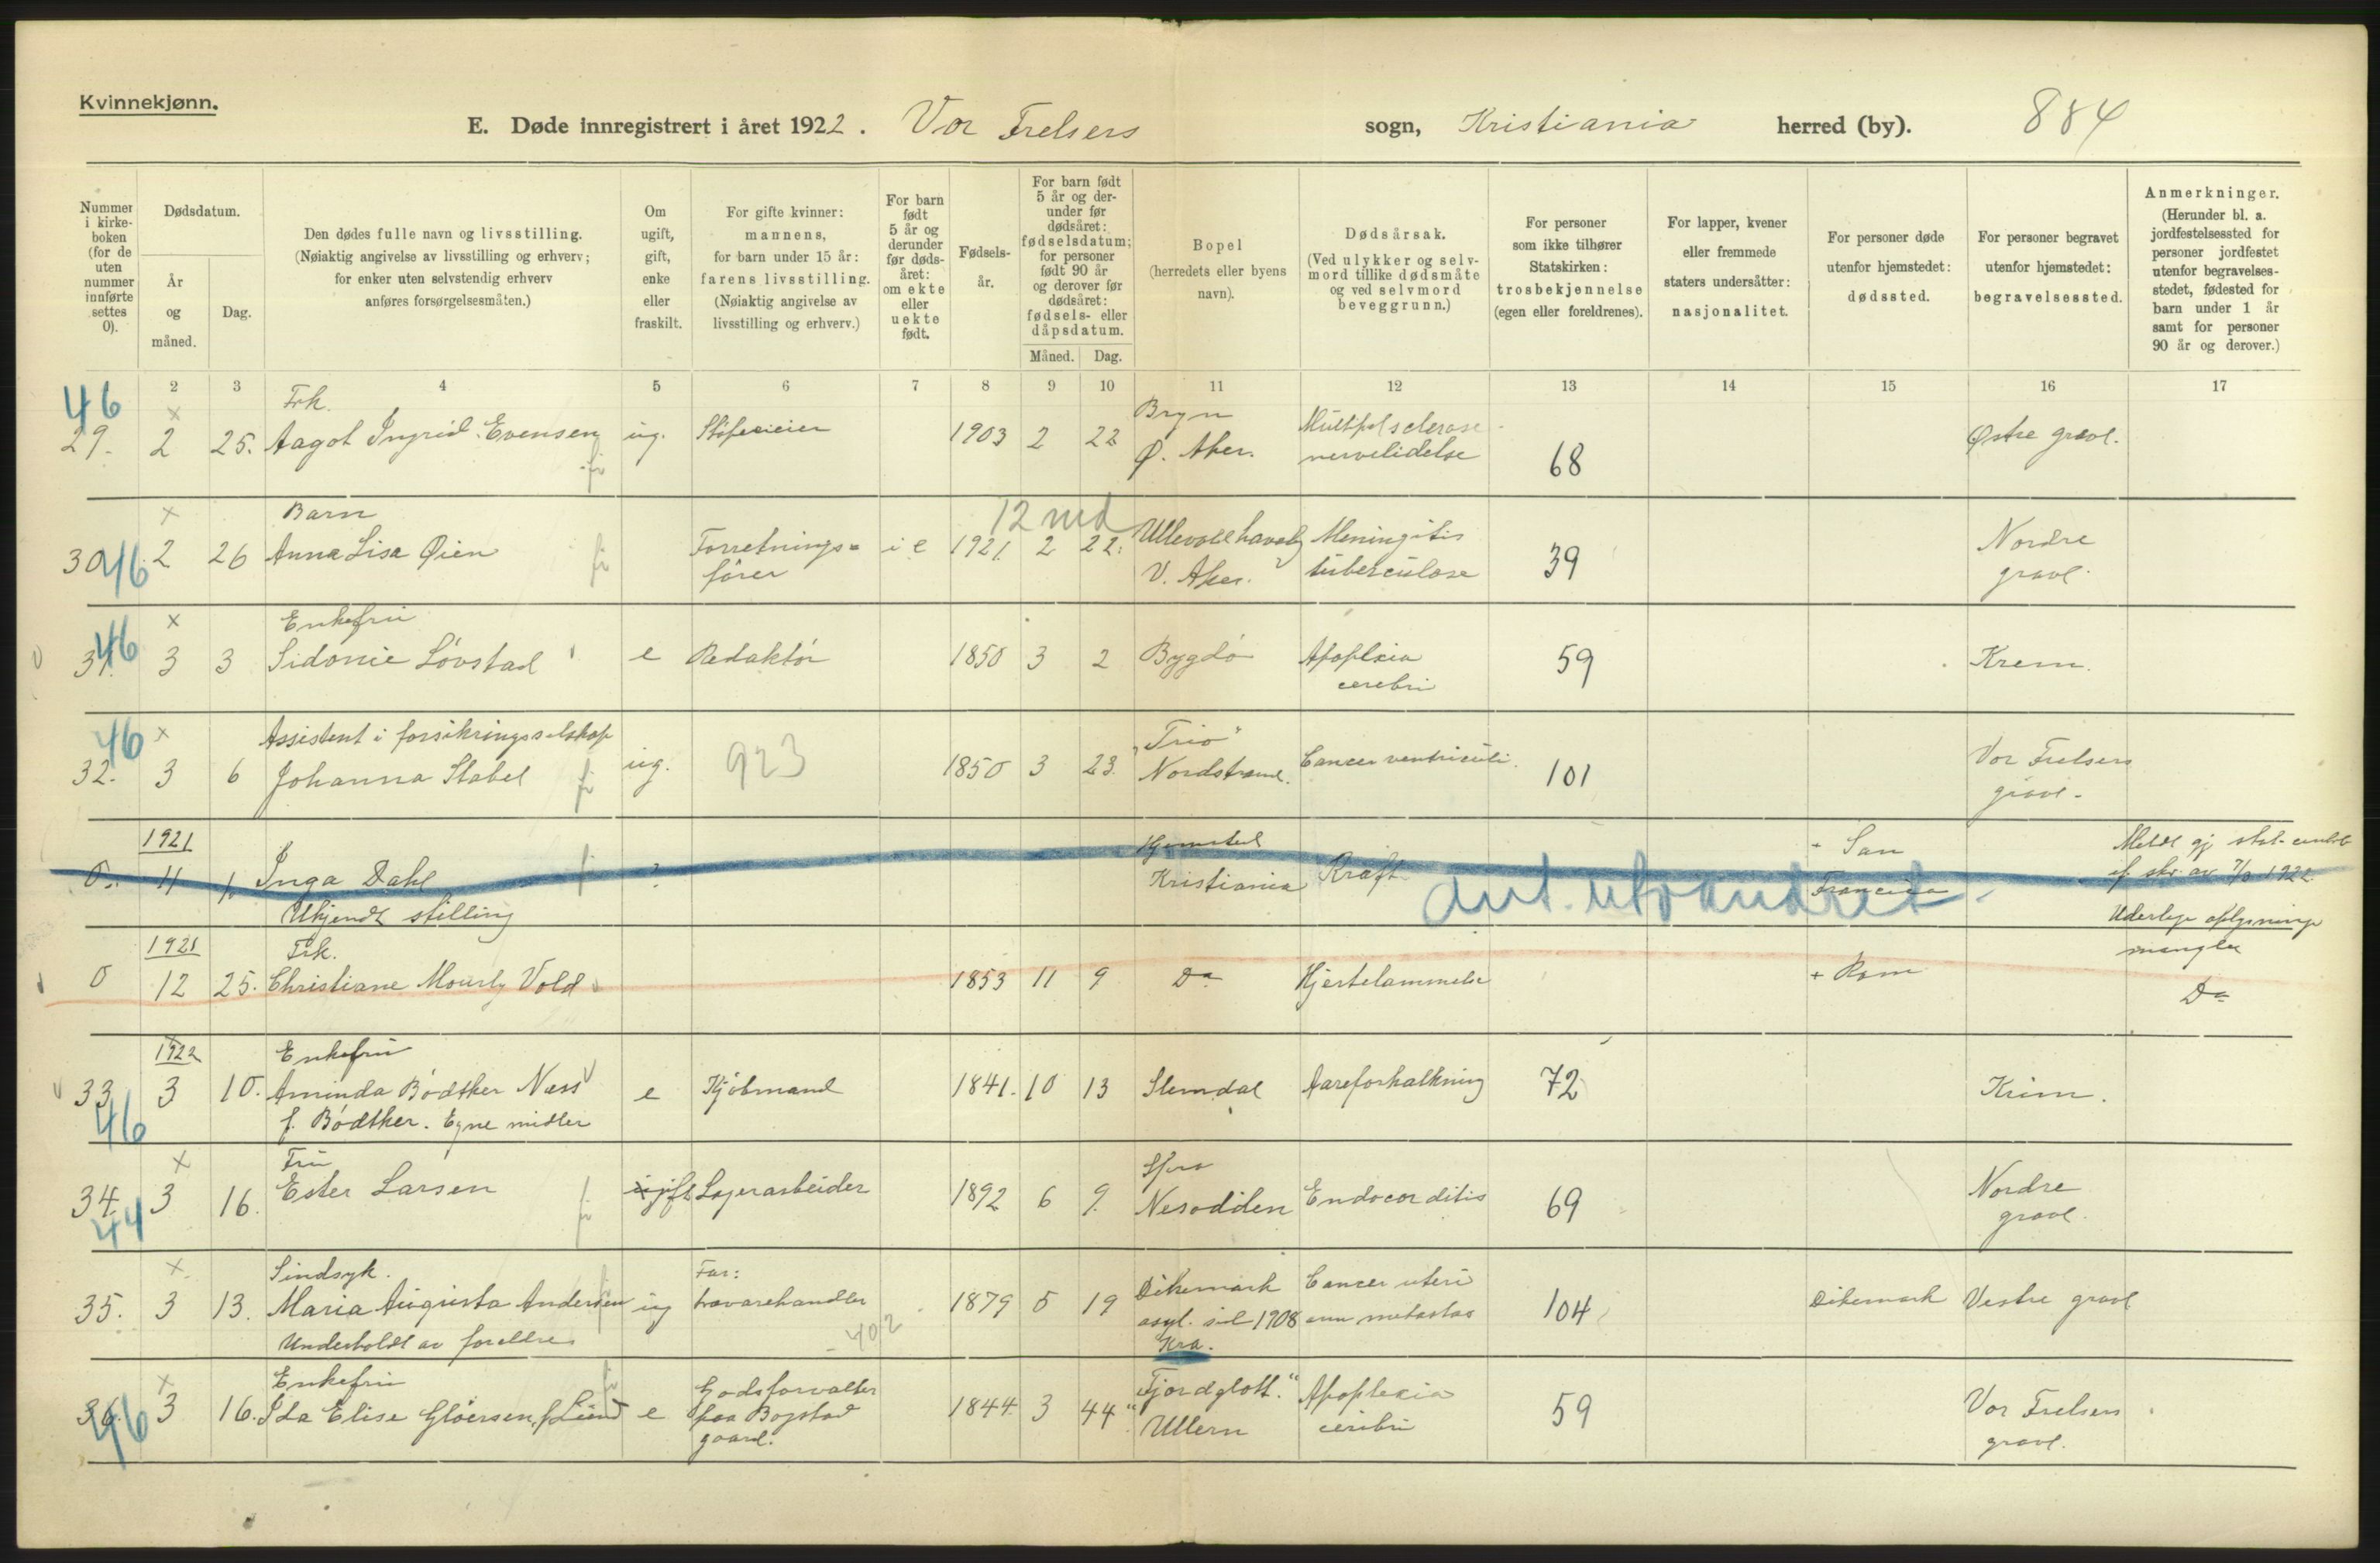 Kvinnekjønn.
E. Døde innregistrert i året 1922. Vor Frelsers sogn, Kristiania herred (by). 884
Nummer i kirkeboken (for de uten nummer innførte settes 0).
Dødsdatum.
År og måned.
Dag.
Den dødes fulle navn og livsstilling.
(Nøiaktig angivelse av livsstilling og erhverv;
for enker uten selvstendig erhverv
anføres forsørgelsesmåten.)
Om
ugift,
gift,
enke
eller
fraskilt.
For gifte kvinner:
mannens,
for barn under 15 år:
farens livsstilling.
(Nøiaktig angivelse av
livsstilling og erhverv.)
For barn
født
5 år og
derunder
før døds-
året:
om ekte
eller
uekte
født.
Fødsels-
år.
For barn født
5 år og der-
under før
dødsåret:
fødselsdatum;
for personer
født 90 år
og derover før
dødsåret:
fødsels- eller
dåpsdatum.
Måned. Dag.
Bopel
(herredets eller byens
navn).
Dødsårsak.
(Ved ulykker og selv-
mord tillike dødsmåte
og ved selvmord
beveggrunn.)
For personer
som ikke tilhører
Statskirken:
trosbekjennelse
(egen eller foreldrenes).
For lapper, kvener
eller fremmede
staters undersåtter:
nasjonalitet.
For personer døde
utenfor hjemstedet:
dødssted.
For personer begravet
utenfor hjemstedet:
begravelsessted.
Anmerkninger.
(Herunder bl. a.
jordfestelsessted for
personer jordfestet
utenfor begravelses-
stedet, fødested for
barn under 1 år
samt for personer
90 år og derover.)
2 3 4 5 6 7 8 9 10 11 12 13 14 15 16 17
46 × Frk. Bryn Multipel sclerose
29. 2 25. Aagot Ingrid Evensen ug. 1903 2 22 Ø. Aker. nervelidelse 68 Østre gravl.
× Barn 12 md
30 46 2 26 Anna Lisa Øien Forretnings= e 1921. 2 22. Meningitis 39 Nordre
fører V. Aker. tuberculose gravl.
× Enkefru
31. 46 3 3 Sidonie Løvstad e Redaktør 1850 3 2 Bygdø Apoplexia 59 Krem.
cerebri
46 × Assistent i forsikringsselskap "Trio"
32. 3 6 Johanna Stabel ug. 923 1850 3 23. Nordstrand. Cancer ventriculi. 101 Vor Frelsers
gravl.
1921 Hjemsted + San Meldt gj. stat.
0. 11 1. Inga Dahl ? Kristiania Kræft. Francisco skr. av 7/3 1922.
Ukjendt stilling ant. utvandret Yderligere oplysninger
mangler
1921 Frk.
0 12 25. Christiane Mourly Vold 1853 11 9 Do Hjertelammelse + Rom Do
1922 Enkefru
33 3 10. Aminda Bødtker Næss e Kjøbmand 1841. 10 13 Slemdal Aareforkalkning 72 Krem.
46 f. Bødtker. Egne midler
× Fru
34. 3 16. Ester Larsen gift Lagerarbeider 1892 6 9. Nesodden Endocarditis 69 Nordre
44 gravl.
× Sindsyk. Far:
35. 3 13. Maria Augusta Andersen ug travarehandler 1879 5 19 Dikemark Cancer uteri 104 Dikemark Vestre gravl
Underholdt av forældre 402 asyl. 1908 metastas
Kra.
× Enkefru Godsforvalter "Fjordglott." Apoplexia
36. 46 3 16. Ida Elise Gløersen, f. Lund e paa Bogstad 1844. 3 44 Ullern cerebri 59 Vor Frelsers
gaard. gravl.